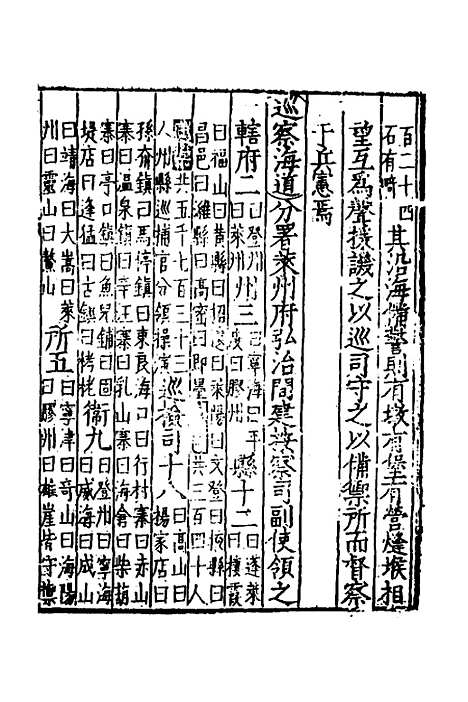 百二十四石有奇其沿海備警則有墩有堡有營燧堠相
望互為聲援譏之以巡司守之以備禦所而督察
于兵憲焉
巡察海道分署萊州府弘治間建按察司副使領之
轄府二曰登州曰萊州州三曰寧海曰平度曰膠州縣十二曰蓬萊曰棲霞
曰福山曰黃縣曰招遠曰萊陽曰文登曰掖縣曰
昌邑曰濰縣曰高密曰即墨共三百四十人
共五千七百三十三人州縣巡捕官分領操演巡檢司十八曰高山曰楊家店曰
孫夼鎮曰馬停鎮曰東良海口曰行村寨曰赤山
寨曰溫泉鎮曰辛汪寨曰乳山寨曰海倉曰柴葫
寨曰亭口鎮曰魚兒鋪曰固堤店曰逢猛曰古鎮曰栲栳衛九曰登州曰寧海曰威海曰成山
曰靖海曰大嵩曰萊州曰靈山曰鰲山所五曰寧津曰奇山曰海陽曰膠州曰雄崖皆守禦